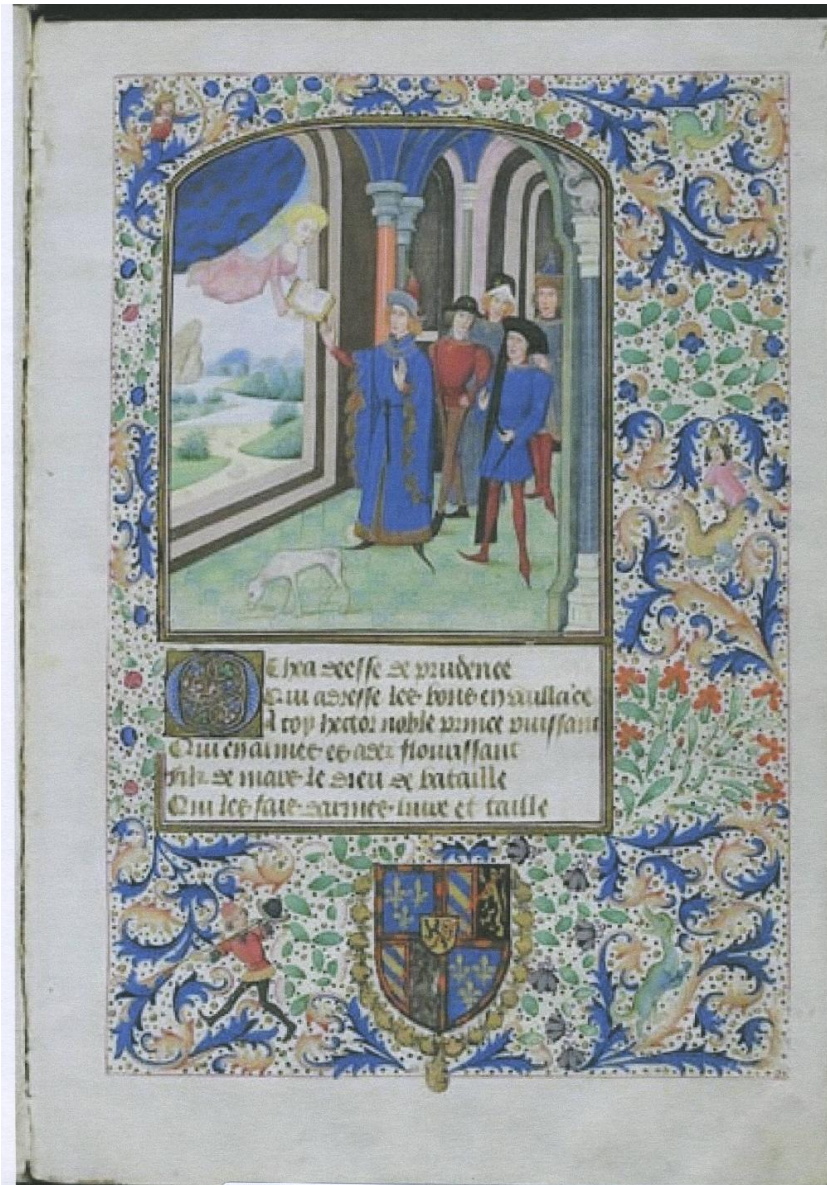 Othea deesse de prudence
Qui adresse les bons en uaillāce
A toy hector noble prince puissant
Qui en armes es adez flouissant
filz de mars le dieu de bataille
Qui les fais darmes liure et taille